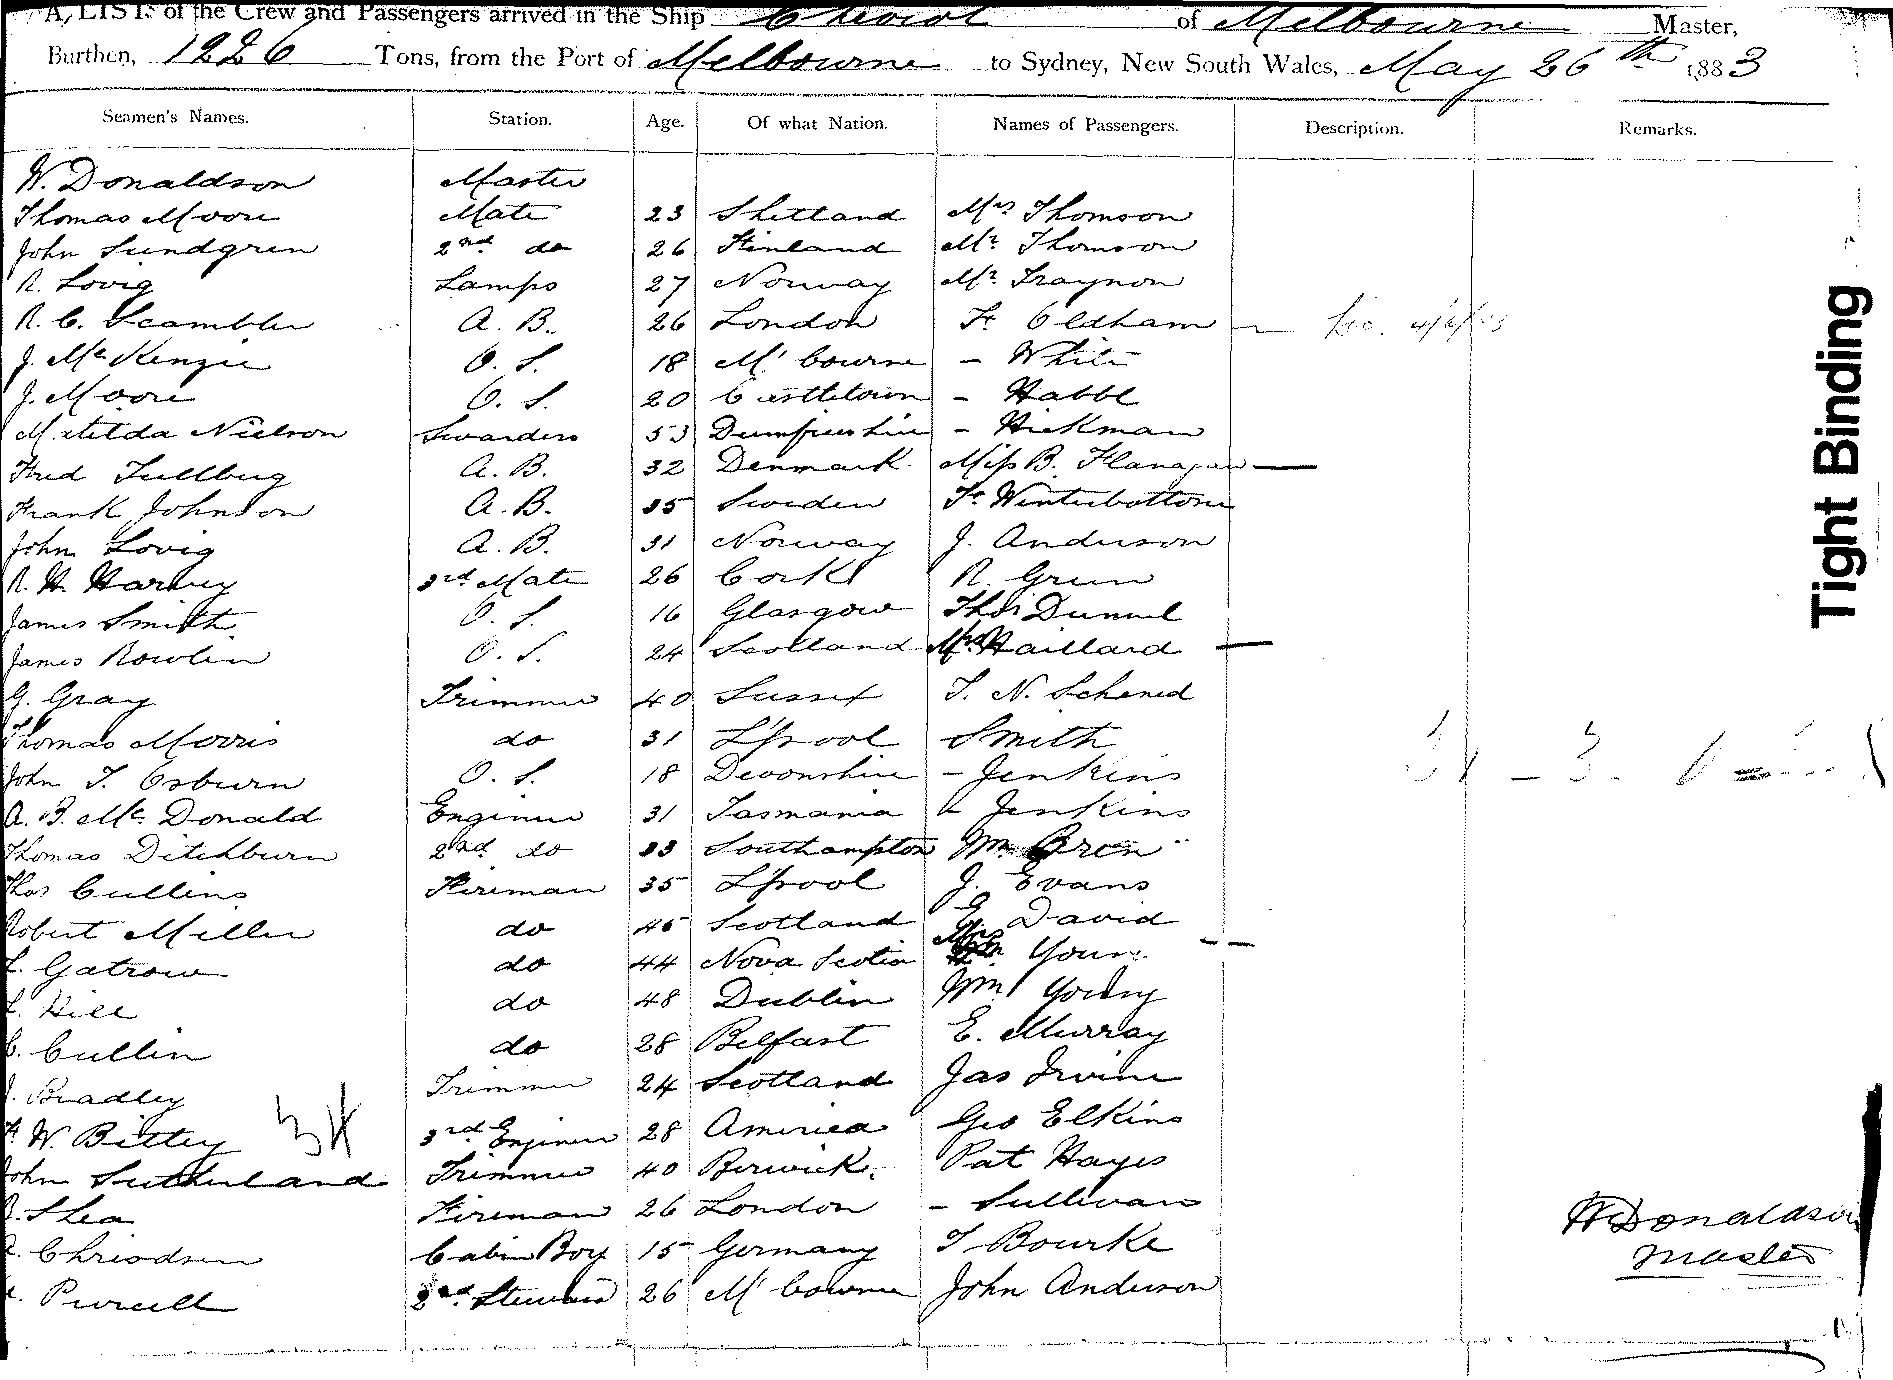 A LIST of the Crew and Passengers arrived in the Ship Cheviot of Melbourne Master,
Burthen, 1226 Tons, from the Port of Melbourne to Sydney, New South Wales, May 26th 1883
Seamen's Names. Station. Age. Of what Nation. Names of Passengers. Description. Remarks.
W. Donaldson Master
Thomas Moore Mate 23 Shetland Mrs Thomson
John Sundgren 2nd do 26 Finland Mr Thomson
R. Lovig Lamps 27 Norway Mr Traynon
R. C. Scambler A. B. 26 London Fr Oldham
J. McKenzie O. S. 18 M'bourne - White
J. Moore O. S. 20 Castletown - Habbl
Matilda Nielson 53 Dumfrieshire - Hickman
Fred Tullbug A. B. 32 Denmark Miss B. Flanagan
Frank Johnson A. B. 35 Sweden Fr Winterbottom
John Lovig A. B. 31 Norway J. Anderson
R. H. Harvey 3rd Mate 26 Cork R. Green
James Smith O. S. 16 Glasgow Thos
James Rowlen O. S. 24 Scotland Mrs Haillard
G. Gray Trimmer 40 Sussex T. N. Schened
Thomas Morris do 31 L'pool Smith
John T. Osburn O. S. 18 Devonshire - Jenkins
A. B. McDonald Engineer 31 Tasmania Jenkins
Thomas Ditchburn 2nd do 33 Southampton Wm Bren
Thos Cullins Fireman 35 L'pool J. Evans
Robert Miller do 45 Scotland David
Gatrow do 44 Nova Scotia Young
Hill do 48 Dublin Wm Young
C. Cullen do 28 Belfast E. Murray
Bradley Trimmer 24 Scotland Jas Irvine
W. Bittey 3rd Engineer 28 America Geo Elkins
John Sutherland Trimmer 40 Berwick. Pat Hayes
Shea Fireman 26 London - Sullivan
Chriodsen Cabin Boy 15 Germany T Bourke
Purcell 2nd Steward 26 M'bourne John Anderson
W Donaldson
Master
Tight Binding